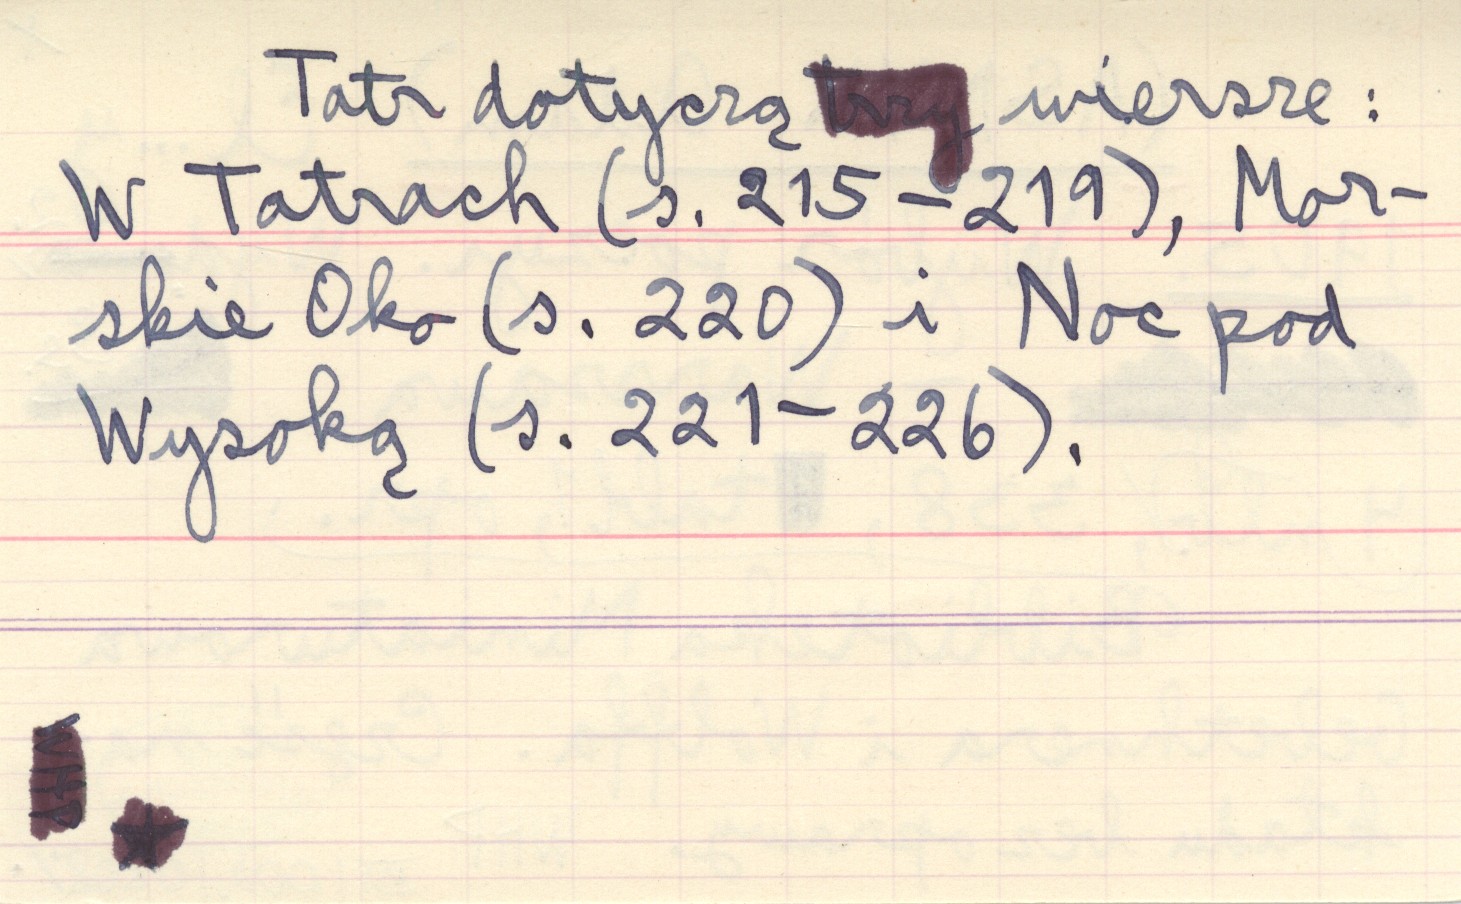 Tatr dotyczą trzy wiersze:
W Tatrach (s. 215-219), Mor-
skie Oko (s. 220) i Noc pod
Wysoką (s. 221-226).